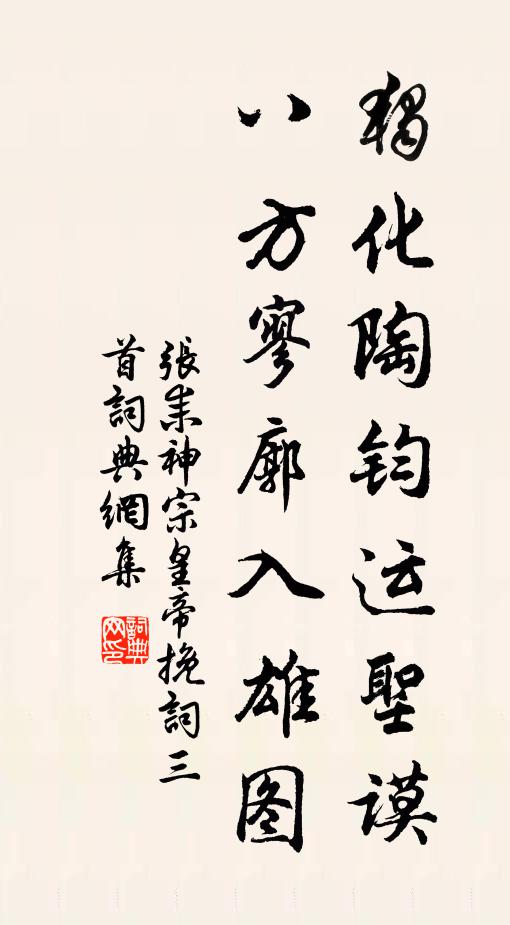 独化陶钧运聖谟
八方寥廓入雄图
張耒神宗皇帝挽詞三
首詞典網集
詞典
网印